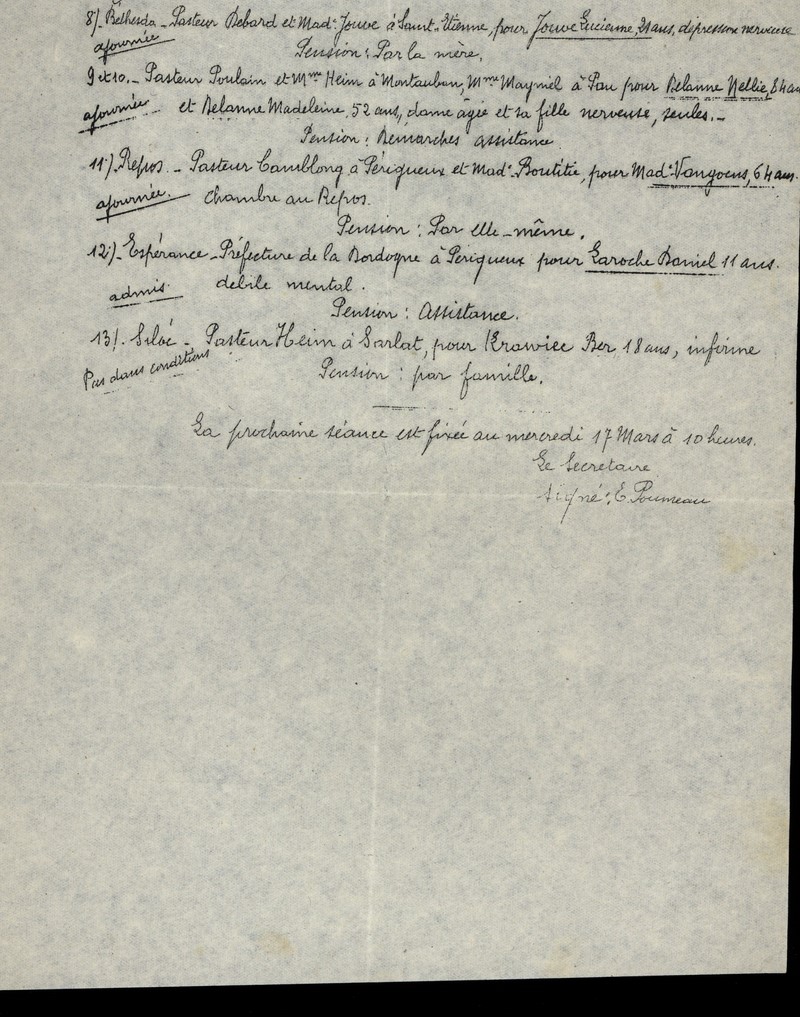 8°/. Béthesda - Pasteur Debard et Made Jouve à Saint-Etienne, pour Jouve Lucienne, 21 ans, dépression nerveuse
ajournée
Pension : Par la mère.
9 et 10. - Pasteur Poulain et Mme Heim à Montauban, Mme Mayniel à Pau pour Delanne Nellie, 84 ans
ajournée et Delanne Madeleine, 52 ans, dame âgée et sa fille nerveuse, seules. -
Pension : Démarches assistance
11°/. Repos. - Pasteur Camblong à Périgueux et Made Boutitie, pour Made Vangoens, 64 ans.
ajournée. chambre au Repos.
Pension : Par elle-même.
12°/- Espérance - Préfecture de la Dordogne à Périgueux pour Laroche Daniel 11 ans.
admis. débile mental.
Pension : Assistance.
13/. Siloé - Pasteur Heim à Sarlat, pour Krawiec Ber 18 ans, infirme
Pas dans conditions
Pension : par famille.
La prochaine séance est fixée au mercredi 17 Mars à 10 heures.
Le Secrétaire
signé : E. Poumeau